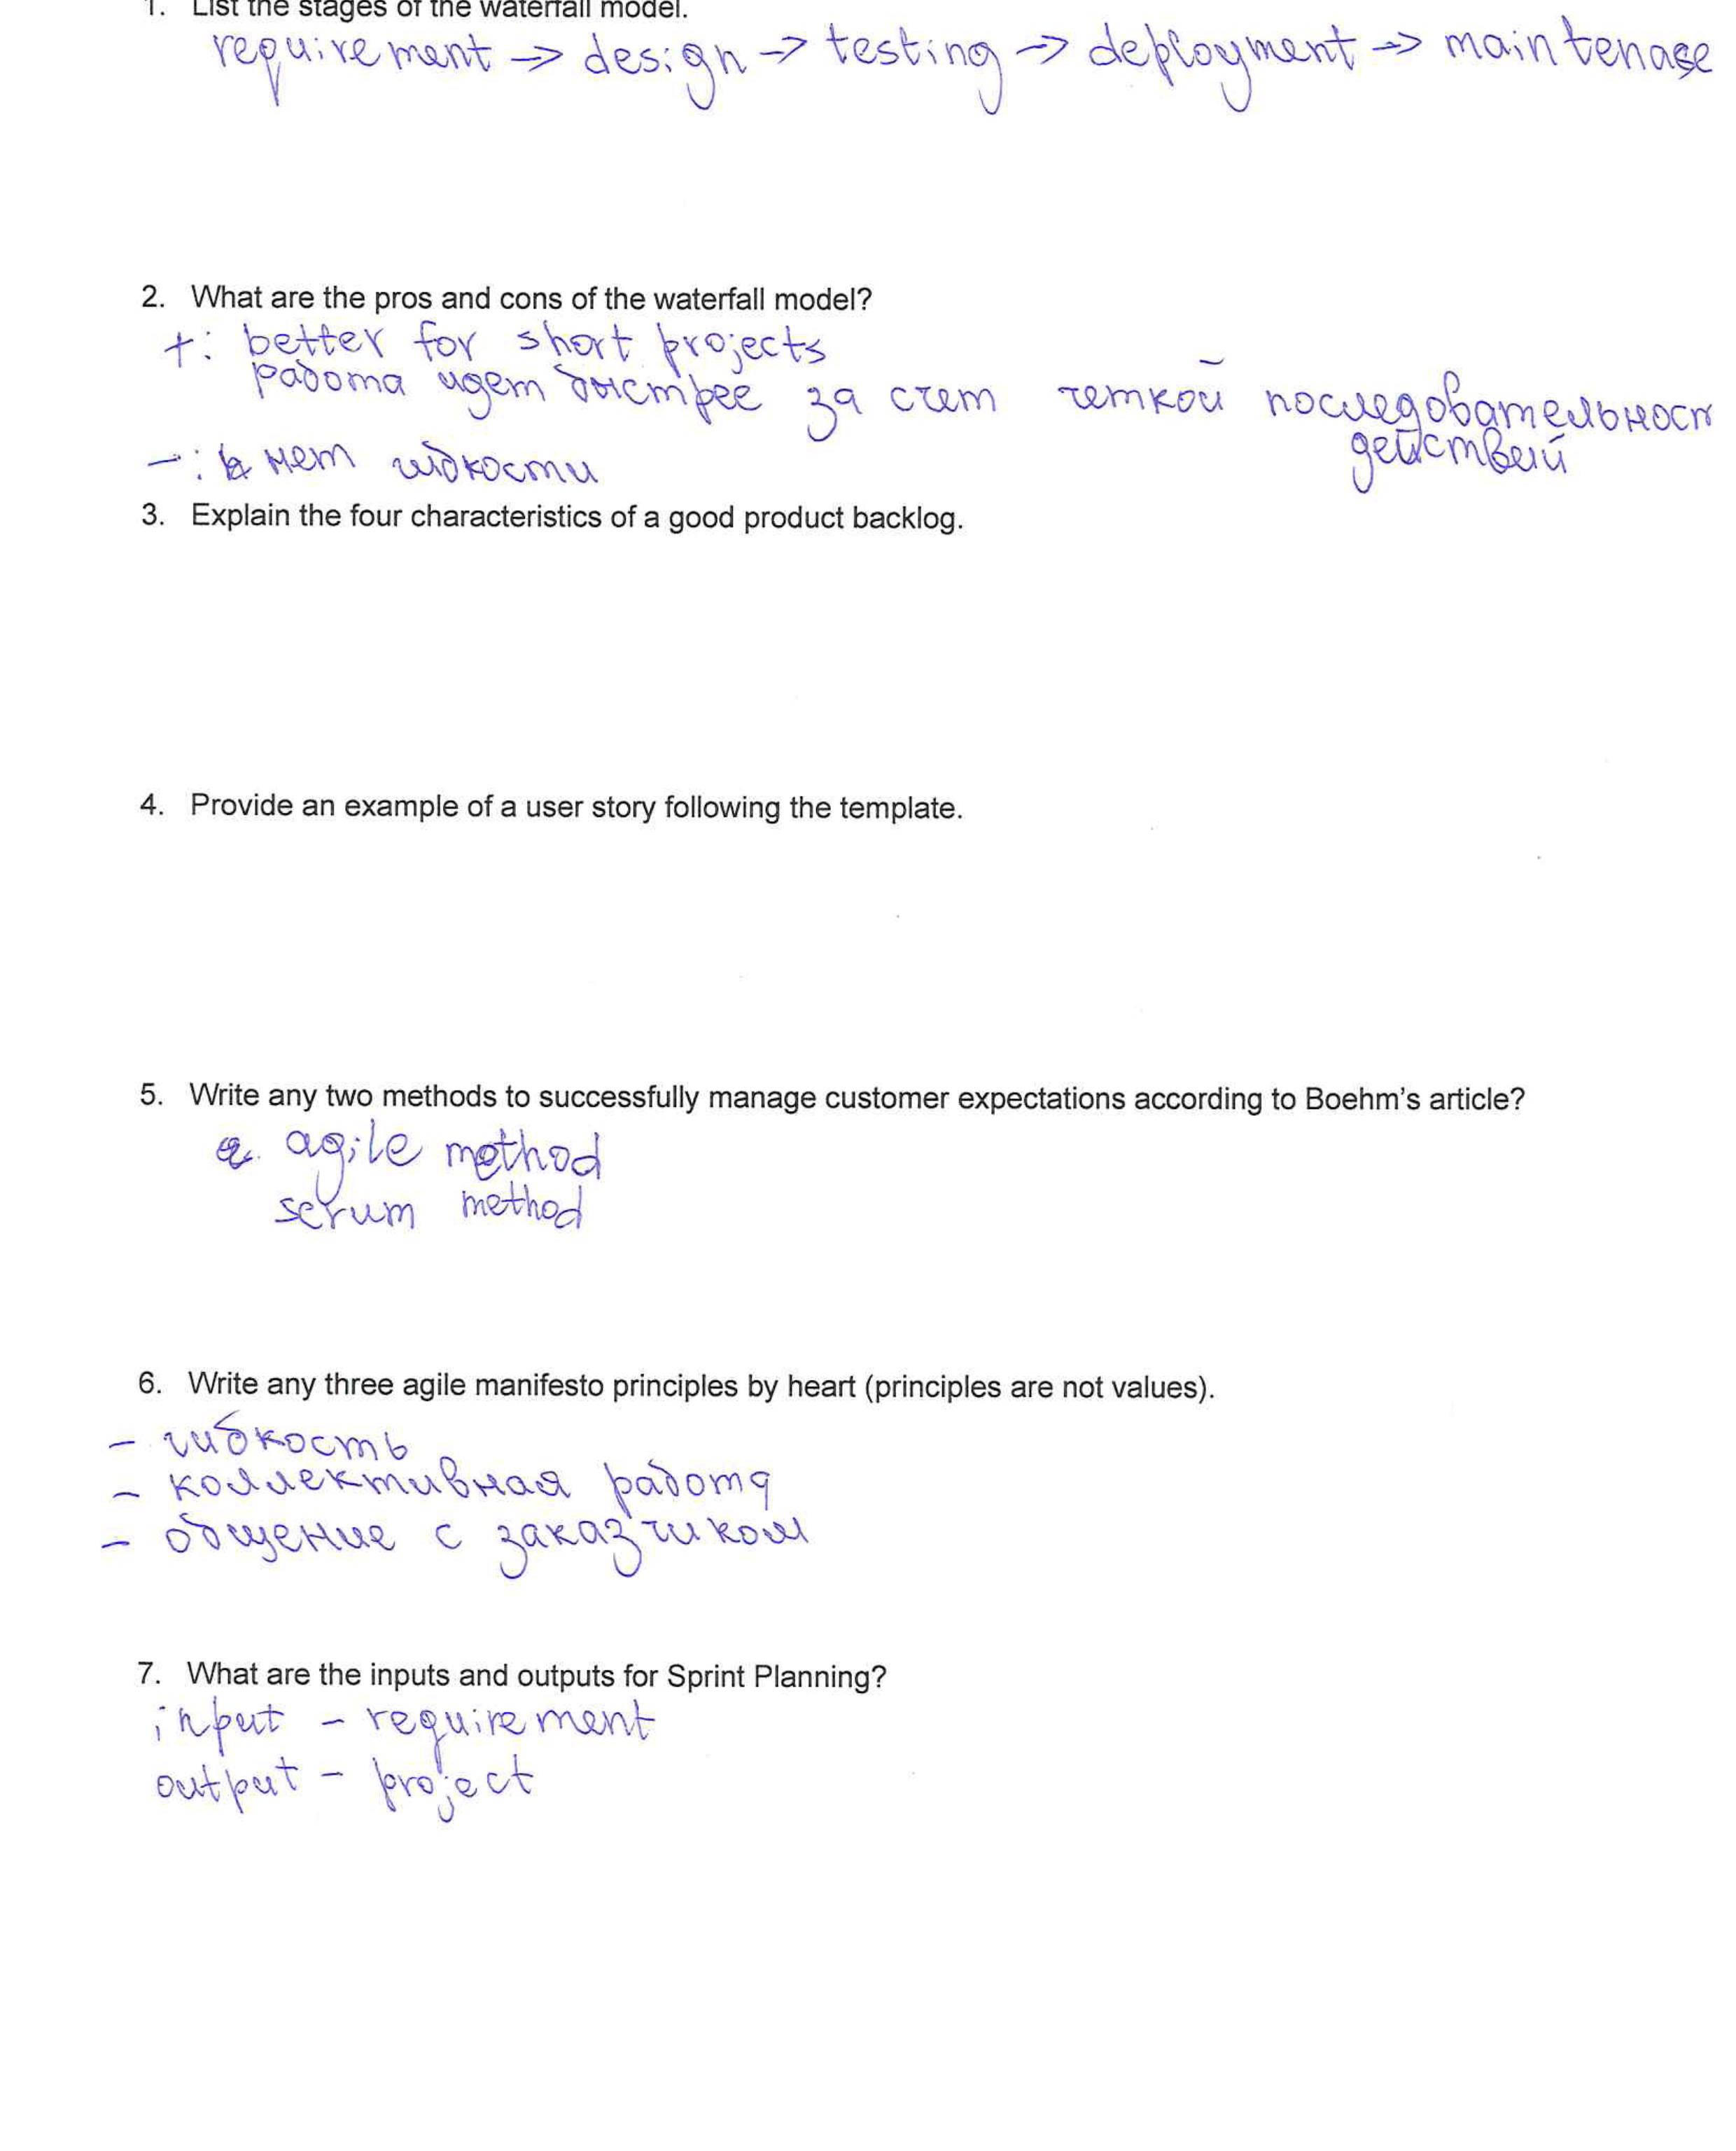 1. List the stages of the waterfall model.
requirement -> design -> testing -> deployment -> maintenase
2. What are the pros and cons of the waterfall model?
+: better for short projects
работа идет быстрее за счет четкой последовательност
действий
-: нет гибкости
3. Explain the four characteristics of a good product backlog.
4. Provide an example of a user story following the template.
5. Write any two methods to successfully manage customer expectations according to Boehm's article?
agile method
scrum method
6. Write any three agile manifesto principles by heart (principles are not values).
- гибкость
- коллективная работа
- общение с заказчиком
7. What are the inputs and outputs for Sprint Planning?
input - requirement
output - project